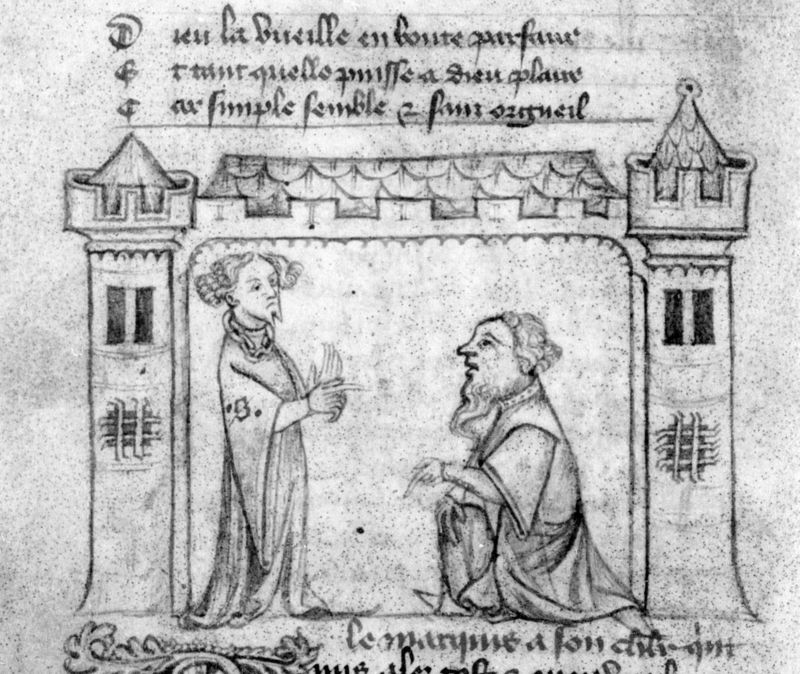 Dieu la vueille en bonte parfaire
Et tant quelle puisse a dieu plaire
Car simple semble & sans orgueil
.S.
le marquis a son chlr qui